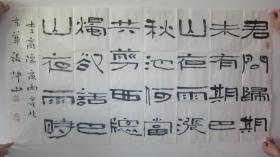 君問歸期
未有期巴
山夜雨漲
秋池何當
共剪西窗
燭却話巴
山夜雨時
李商隱夜雨寄北